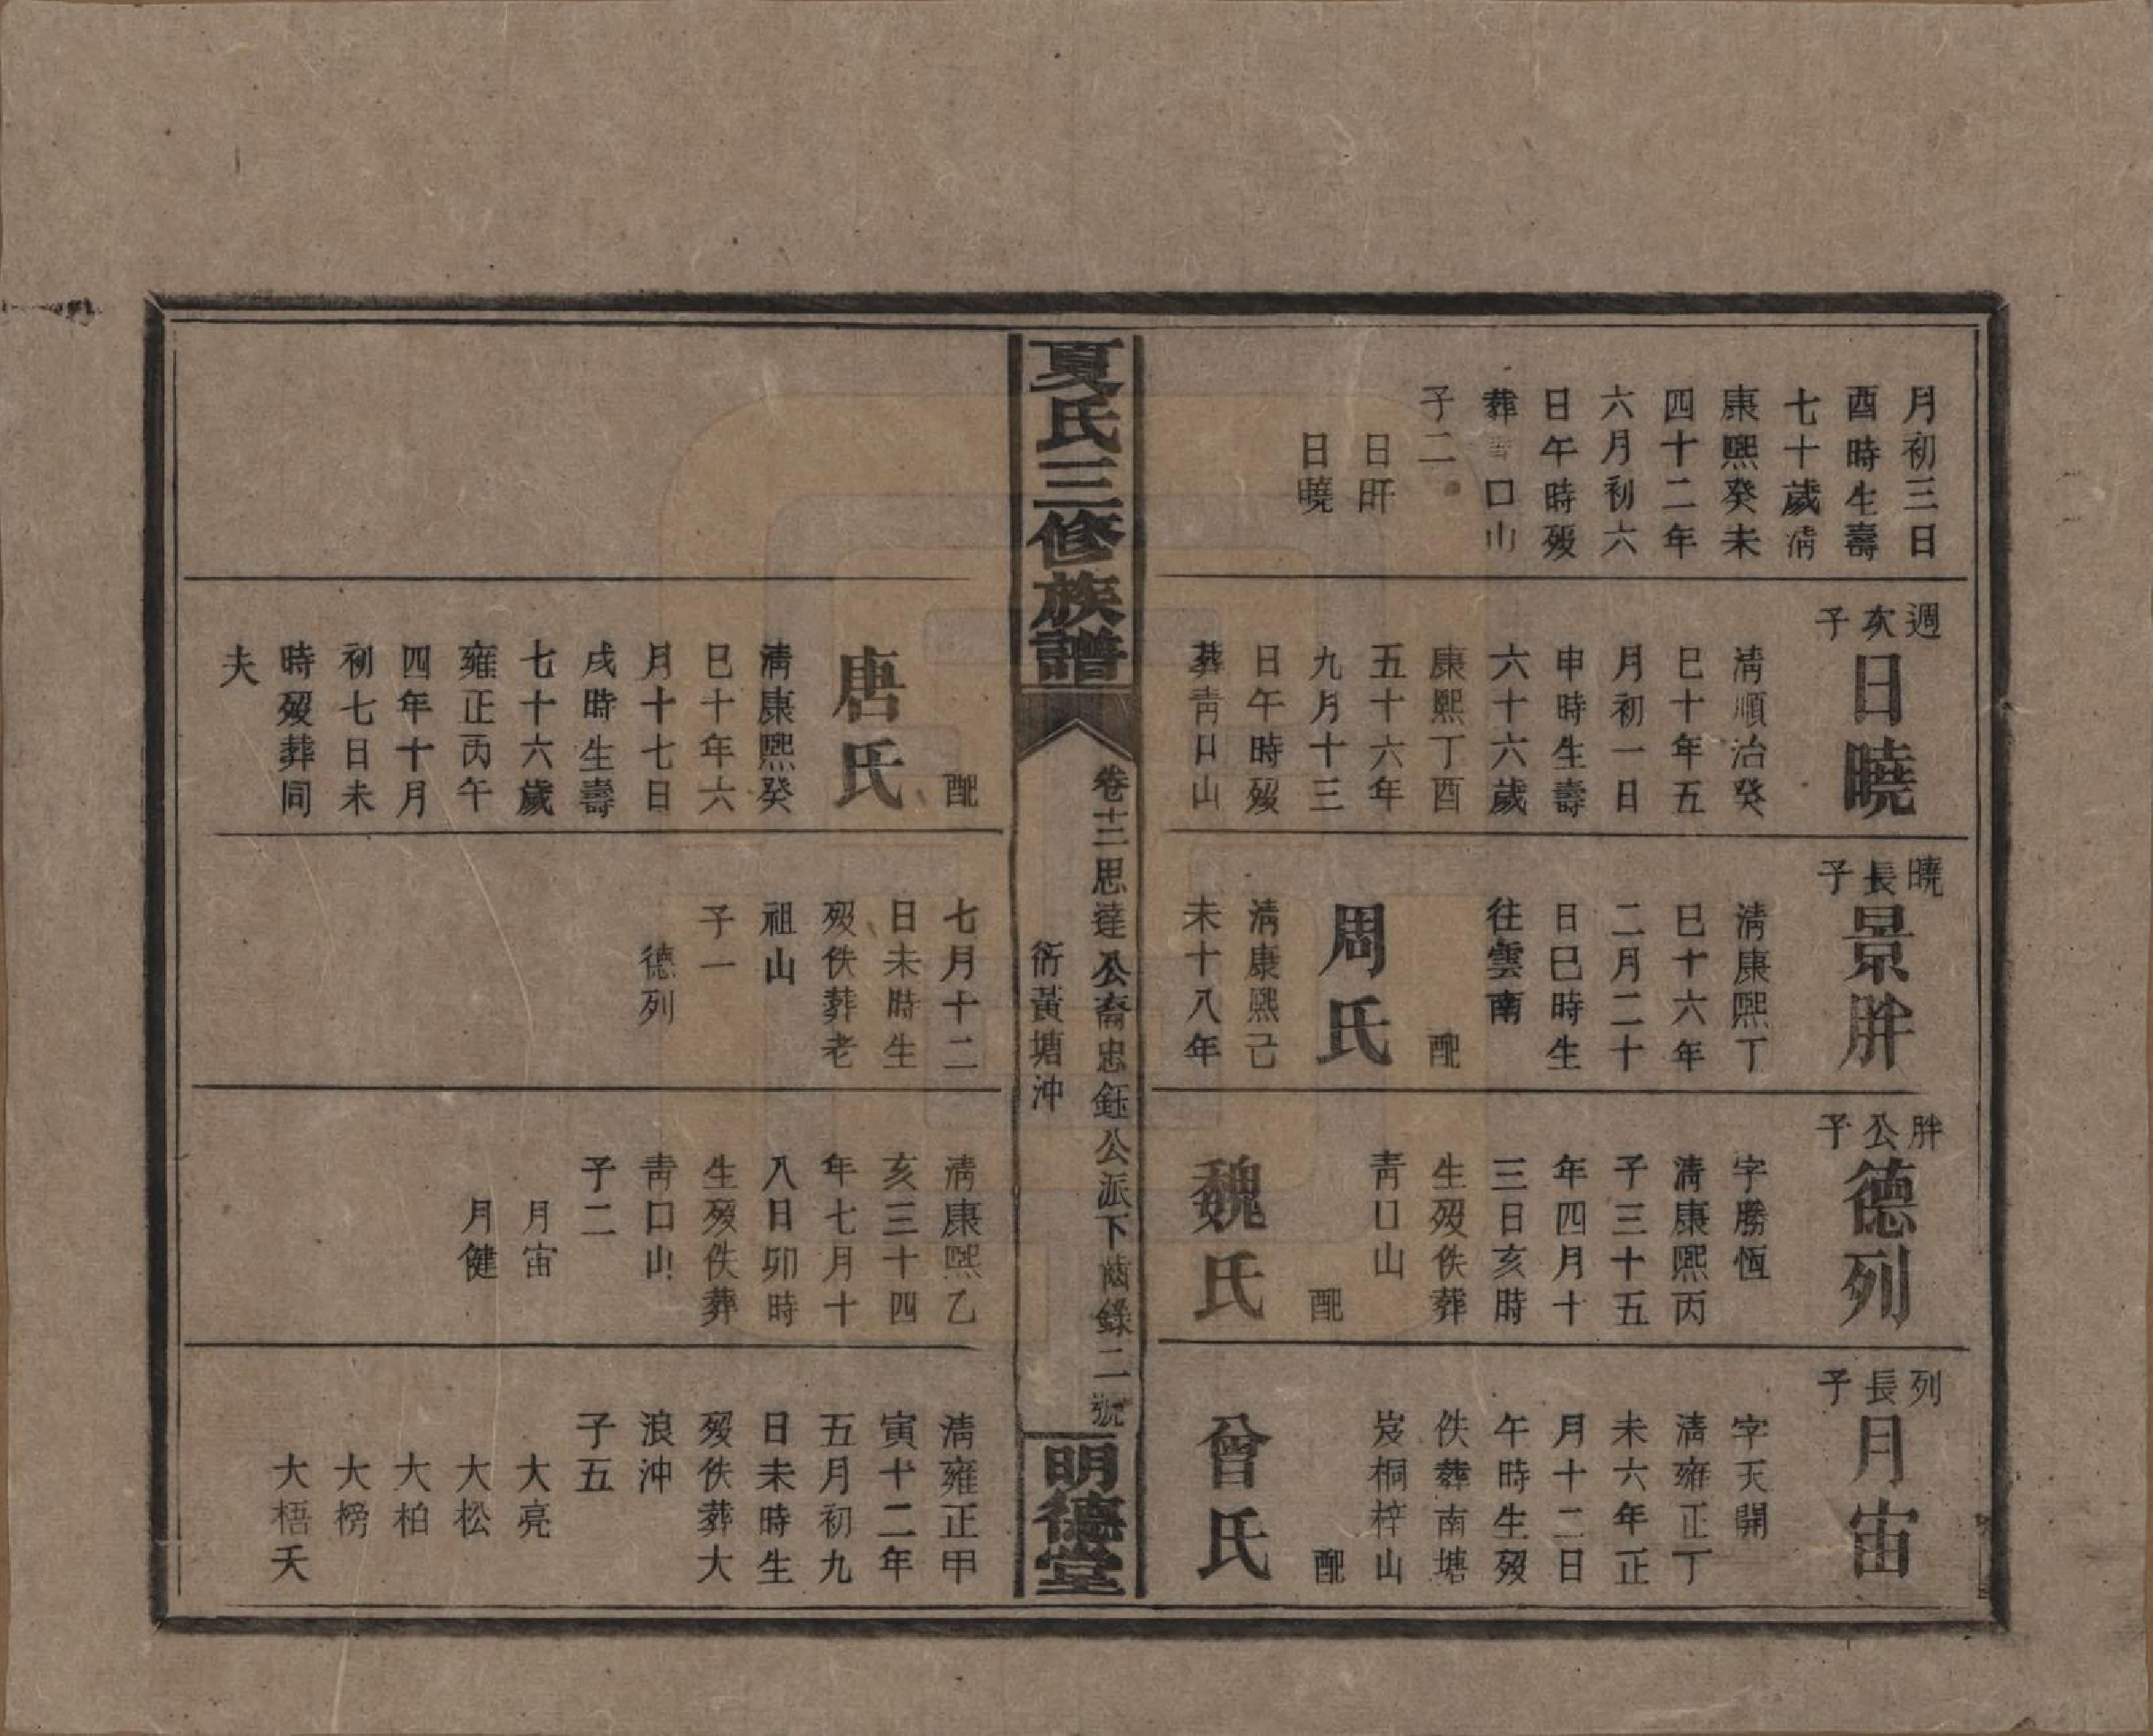 月初三日
酉時生壽
七十歲清
康熙癸未
四十二年
六月初六
日午時歿
葬青口山
子二
日旰
日曉
週次子
日曉
清順治癸
巳十年五
月初一日
申時生壽
六十六歲
康熙丁酉
五十六年
九月十三
日午時歿
葬青口山
曉長子
景胖
清康熙丁
巳十六年
二月二十
日巳時生
往雲南
配
周氏
清康熙己
未十八年
胖公子
德列
字勝恆
清康熙丙
子三十五
年四月十
三日亥時
生歿佚葬
青口山
配
魏氏
列長子
月宙
字天開
清雍正丁
未六年正
月十二日
午時生歿
佚葬南塘
岌桐梓山
配
曾氏
夏氏三修族譜
卷十三思達公裔忠鈺公派下齒錄二號
衍黃塘沖
明德堂
配
唐氏
清康熙癸
巳十年六
月十七日
戌時生壽
七十六歲
雍正丙午
四年十月
初七日未
時歿葬同
夫
七月十二
日未時生
歿佚葬老
祖山
子一
德列
清康熙乙
亥三十四
年七月十
八日卯時
生歿佚葬
青口山
子二
月宙
月健
清雍正甲
寅十二年
五月初九
日未時生
歿佚葬大
浪沖
子五
大亮
大松
大柏
大榜
大梧夭